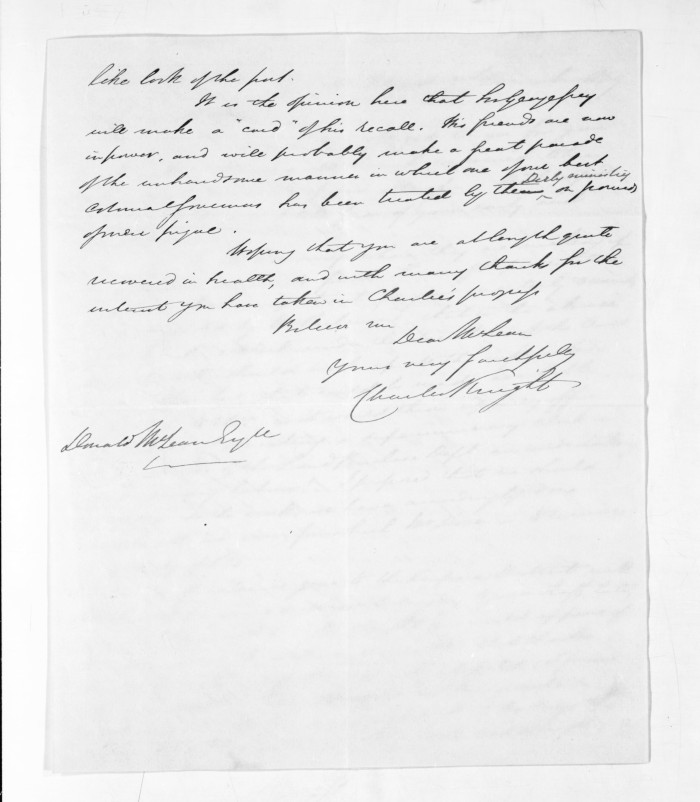 like look of the past.
It is the opinion here that Sir George Grey
will make a "card" of his recall. His friends are now
in power, and will probably make a great parade
of the unhandsome manner in which one of our best
Colonial Governors has been treated by ~~them~~ Derby ministry on grounds
of mere pique.
Hoping that you are at length quite
recovered in health, and with many thanks for the
interest you have taken in Charlie's progress
Believe me
Dear McLean
Yours very faithfully
Charles Knight
Donald McLean Esqre